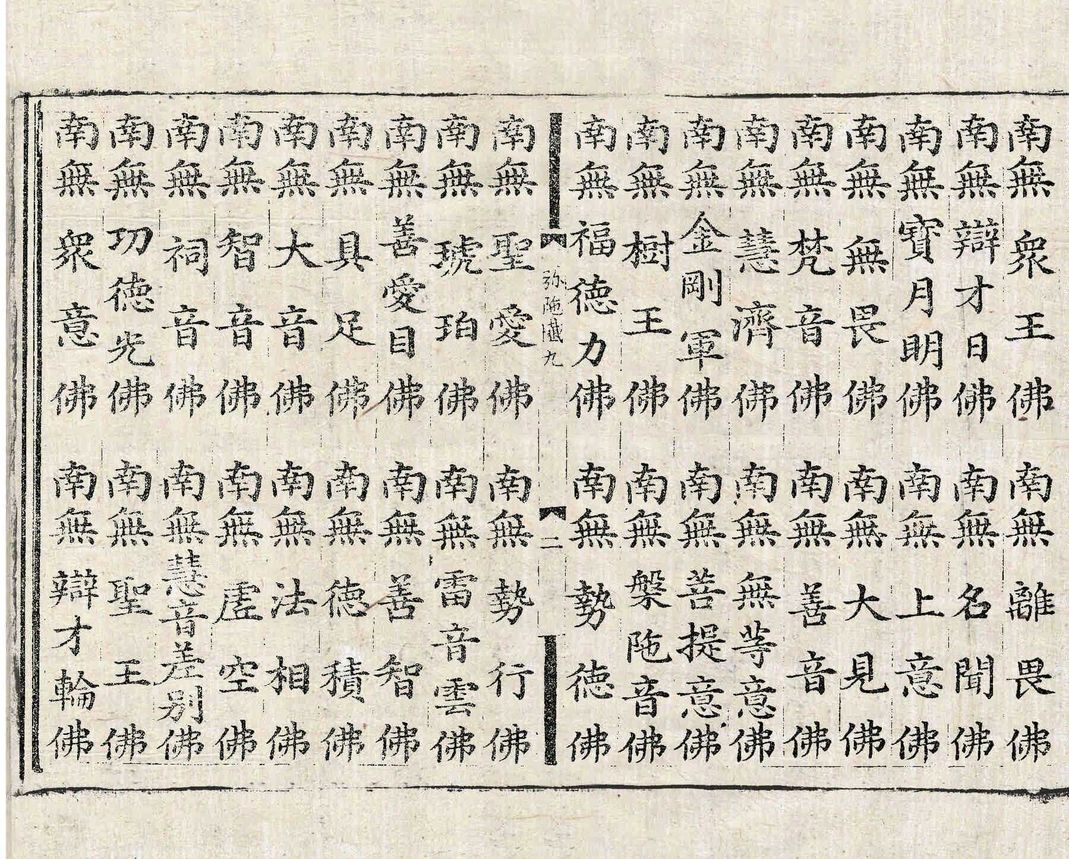 南無衆王佛 南無離畏佛
南無辯才日佛 南無名聞佛
南無寶月明佛 南無上意佛
南無無畏佛 南無大見佛
南無梵音佛 南無善音佛
南無慧濟佛 南無無等意佛
南無金剛軍佛 南無菩提意佛
南無樹王佛 南無槃陁音佛
南無福徳力佛 南無勢徳佛
弥陁懺九 二
南無聖愛佛 南無勢行佛
南無琥珀佛 南無雷音雲佛
南無善愛目佛 南無善智佛
南無具足佛 南無徳積佛
南無大音佛 南無法相佛
南無智音佛 南無虛空佛
南無祠音佛 南無慧音差别佛
南無功徳光佛 南無聖王佛
南無衆意佛 南無辯才輪佛